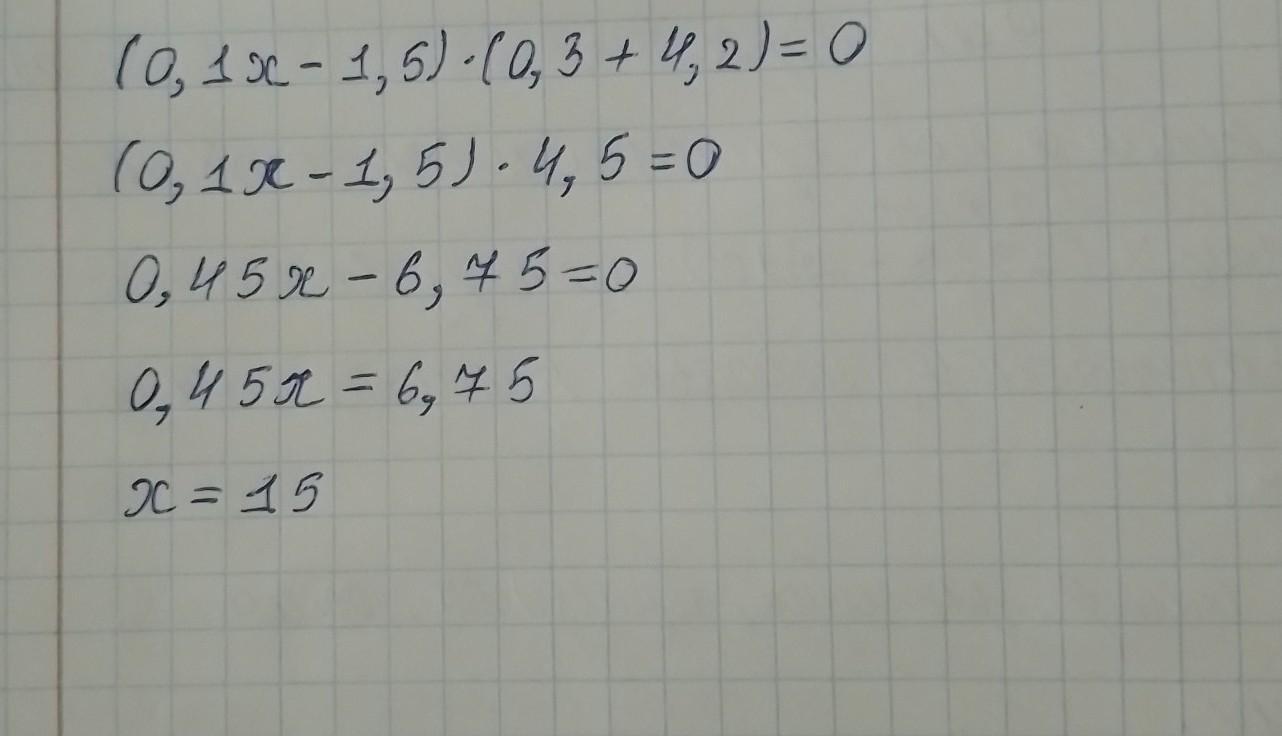 (0,1x-1,5)·(0,3+4,2)=0
(0,1x-1,5)·4,5=0
0,45x-6,75=0
0,45x=6,75
x=15